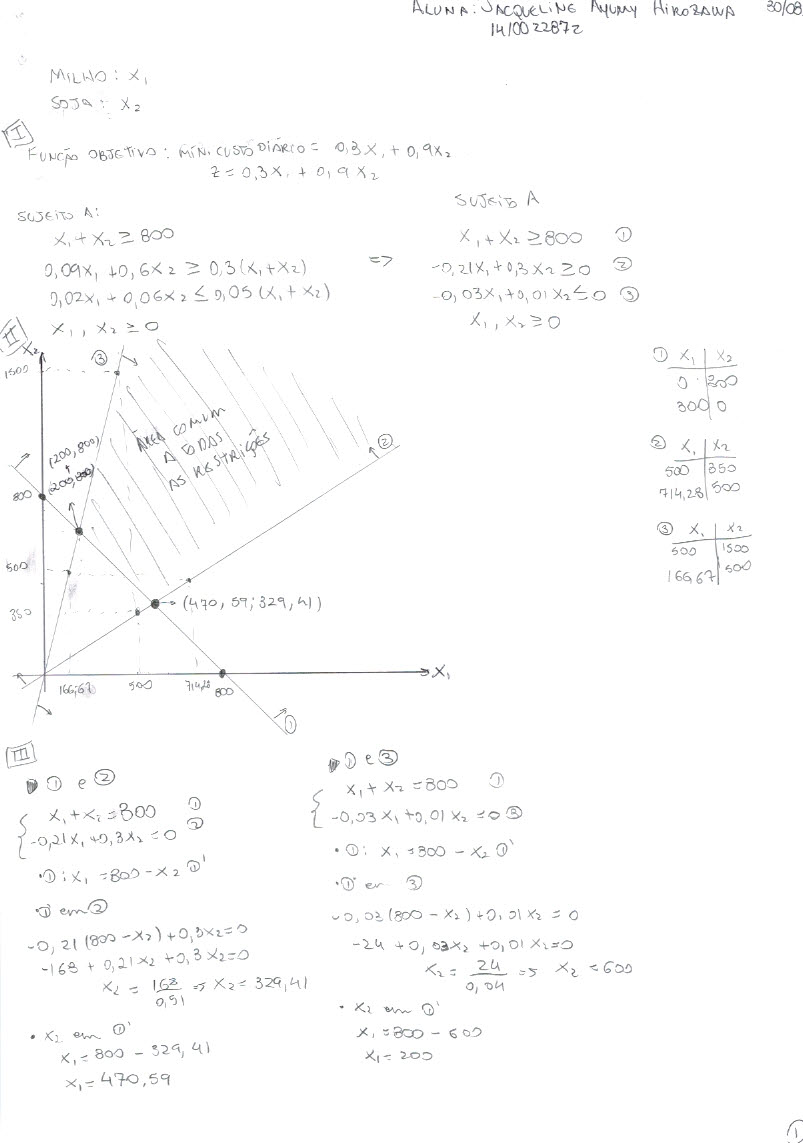 ALUNA: JACQUELINE AYUMY HIROZAWA 30/08
14/0022872
MILHO: X₁
SOJA: X₂
I
FUNÇÃO OBJETIVO: MÍN. CUSTO DIÁRIO = 0,3X₁ + 0,9X₂
Z = 0,3X₁ + 0,9X₂
SUJEITO A:
X₁ + X₂ ≥ 800
0,09X₁ + 0,6X₂ ≥ 0,3(X₁+X₂)
0,02X₁ + 0,06X₂ ≤ 0,05(X₁+X₂)
X₁, X₂ ≥ 0
=>
SUJEITO A
X₁ + X₂ ≥ 800 ①
-0,21X₁ + 0,3X₂ ≥ 0 ②
-0,03X₁ + 0,01X₂ ≤ 0 ③
X₁, X₂ ≥ 0
II
X₂
1500
800
500
350
③
(200,800)
ÁREA COMUM
A TODAS
AS RESTRIÇÕES
②
(470,59; 329,41)
X₁
166,67 500 714,28 800
①
① X₁ | X₂
0 | 800
800 | 0
② X₁ | X₂
500 | 350
714,28 | 500
③ X₁ | X₂
500 | 1500
166,67 | 500
III
① e ②
X₁ + X₂ = 800 ①
-0,21X₁ + 0,3X₂ = 0 ②
• ①: X₁ = 800 - X₂ ①'
①' em ②
-0,21(800 - X₂) + 0,3X₂ = 0
-168 + 0,21X₂ + 0,3X₂ = 0
X₂ = 168/0,51 => X₂ = 329,41
• X₂ em ①'
X₁ = 800 - 329,41
X₁ = 470,59
① e ③
X₁ + X₂ = 800 ①
-0,03X₁ + 0,01X₂ = 0 ③
• ①: X₁ = 800 - X₂ ①'
• ①' em ③
-0,03(800 - X₂) + 0,01X₂ = 0
-24 + 0,03X₂ + 0,01X₂ = 0
X₂ = 24/0,04 => X₂ = 600
• X₂ em ①'
X₁ = 800 - 600
X₁ = 200
①